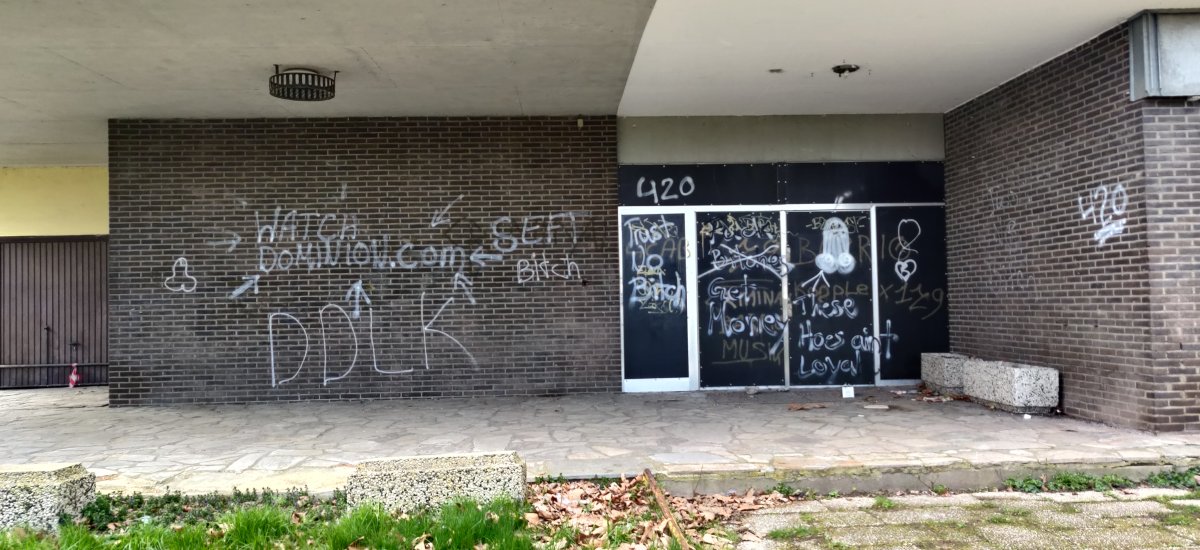 WATCH
DOMINION.COM
SEFT
Bitch
DDLK
420
Trust
No
Bitch
Bytches
Get
Money
MUSIC
These
Hoes aint
Loyal
420